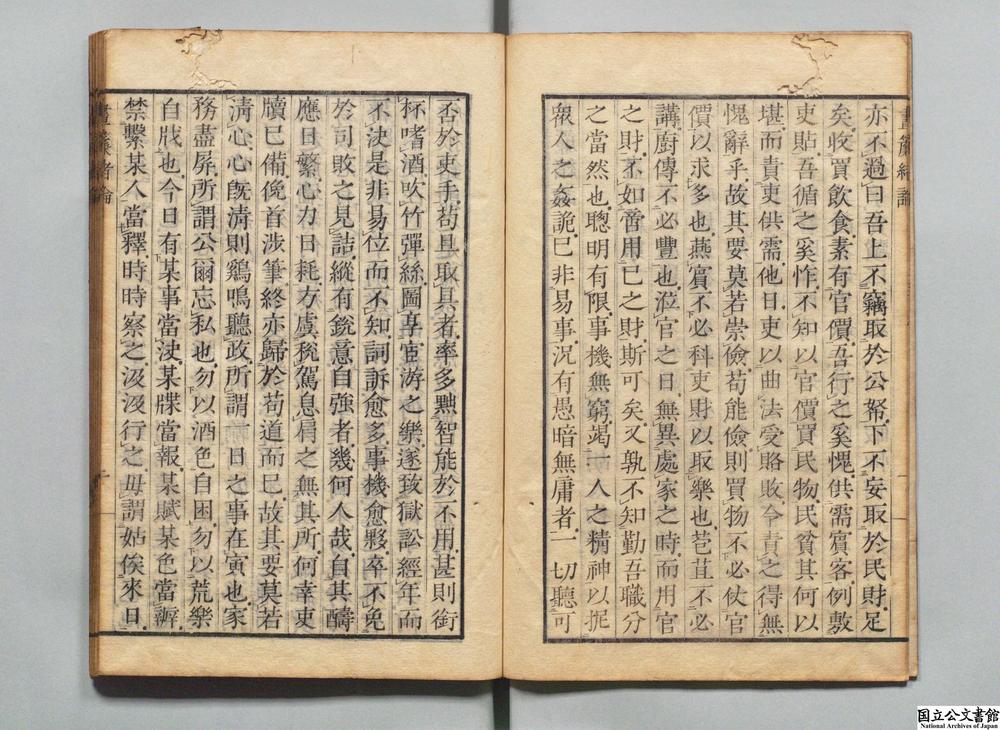 亦不過曰吾上不竊取於公帑下不妄取於民財足
矣收買飲食素有官價吾行之奚愧供需賓客例敷
吏貼吾循之奚怍不知以官價買民物民貧其何以
堪而責吏供需他日吏以曲法受賂敗令責之得無
愧辭乎故其要莫若崇儉苟能儉則買物不必仗官
價以求多也燕賓不必科吏財以取樂也苞苴不必
講厨傳不必豐也涖官之日無異處家之時而用官
之財不如嗇用己之財斯可矣又孰不知勤吾職分
之當然也聰明有限事機無窮竭一人之精神以扼
衆人之姦詭已非易事況有愚暗無庸者一切聽可
否於吏手苟且取具者率多黠智能於不用甚則銜
杯嗜酒吹竹彈絲圖享宦游之樂遂致獄訟經年而
不决是非易位而不知詞訴愈多事機愈夥卒不免
於司敗之見詰縱有銳意自強者幾何人哉自其醻
應日繁心力日耗方虞稅駕息肩之無其所何幸吏
牘已備俛首涉筆終亦歸於苟道而已故其要莫若
清心心旣清則鷄鳴聽政所謂一日之事在寅也家
務盡屏所謂公爾忘私也勿以酒色自困勿以荒樂
自戕也今日有某事當決某牒當報某賦某色當辦
禁繫某人當釋時時察之汲汲行之毋謂姑俟來日
晝簾緒論
晝簾緒論
国立公文書館
National Archives of Japan